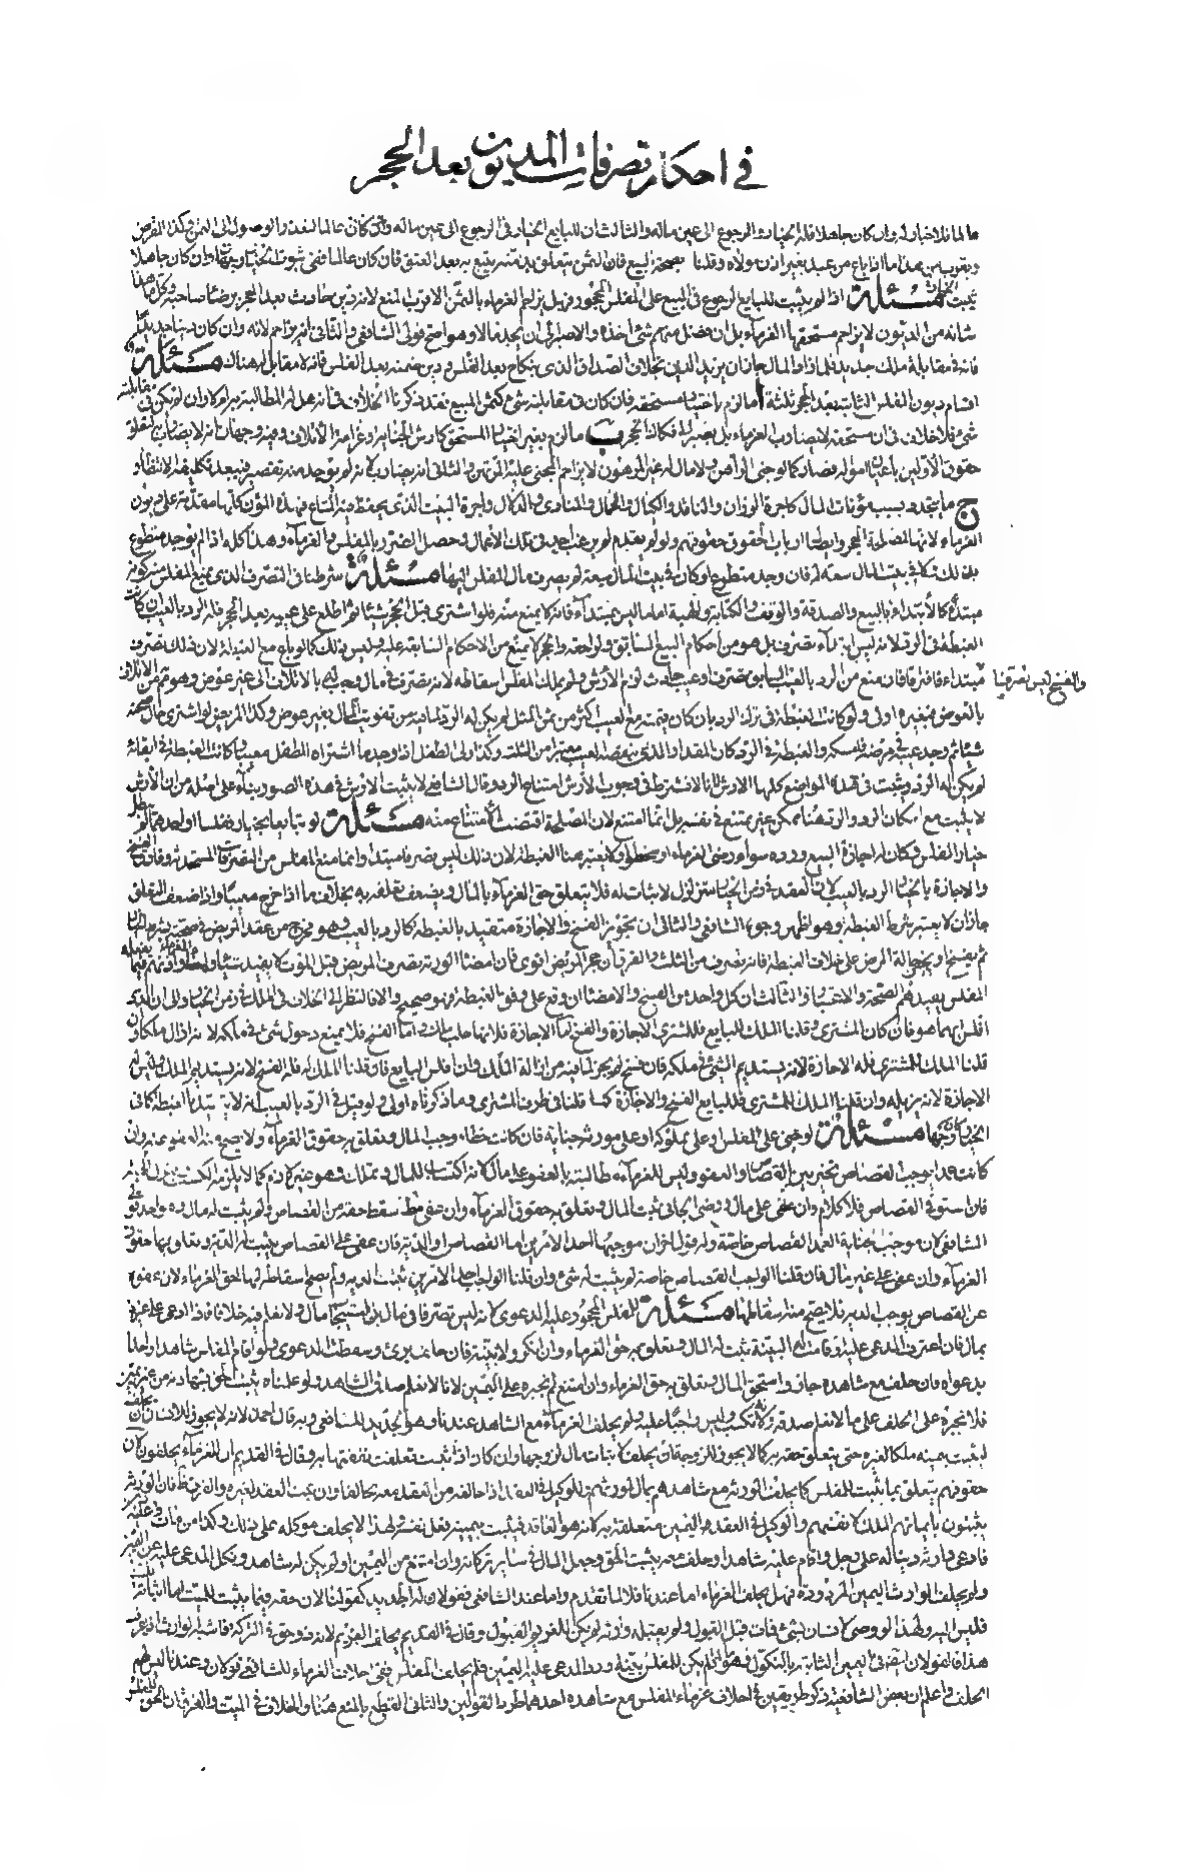 في احكام تصرفات المديون بعد الحجر
عالما فلا خيار له وان كان جاهلا فله الخيار في الرجوع الى عين ماله والثالث ان للبايع الخيار في الرجوع الى عين ماله وان كان عالما لتعذر الوصول الى الثمن وكذا القرض
ويقرب من هذا ما اذا باع من عبد بغير اذن مولاه وقلنا بصحة البيع فان الثمن يتعلق بذمته يتبع به بعد العتق فان كان عالما ففي ثبوت الخيار وجهان وان كان جاهلا
ثبت الخيار مسئلة اذا لم يثبت للبايع الرجوع في المبيع على المفلس المحجور فهل يزاحم الغرماء بالثمن الاقرب المنع لانه دين حادث بعد الحجر برضا صاحبه وكل ما هذا
شانه من الديون لا يزاحم مستحقها الغرماء بل ان فضل منهم شئ اخذه والا صبر الى ان يجد مالا وهو اصح قولي الشافعي والثاني انه يزاحم لانه وان كان دينا جديدا
فانه في مقابلة ملك جديد فلما زاد المال جاز ان يزيد الدين بخلاف الصداق الذي بنكاح بعد الفلس ودين ضمنه بعد الفلس فانه لا مقابل هناك مسئلة
اقسام ديون المفلس الثابتة بعد الحجر ثلثة ا ما لزم باختيار مستحقه فان كان في مقابلته شئ كثمن المبيع فقد ذكرنا الخلاف في انه هل له المطالبة به ام لا وان لم يكن في مقابلته
شئ فلا خلاف في ان مستحقه لا يضارب الغرماء بل يصبر الى فكاك الحجر ب ما لزم بغير اختيار المستحق كارش الجناية وغرامة الاتلاف وفيه وجهان انه لا يضارب لتعلق
حقوق الاولين باعيان امواله فصار كما لو جنى الراهن ولا مال له غير المرهون لا يزاحم المجني عليه المرتهن والثاني انه يضارب لانه لم يوجد منه تقصير فيبعد تكليفه الانتظار
ج ما يتجدد بسبب مؤنات المال كاجرة الوزان والناقد والكيال والحمال والمنادي والدلال واجرة البيت الذي يحفظ فيه المتاع فهذه المؤن كلها مقدمة على ديون
الغرماء لانها لمصلحة الحجر وايصال ارباب الحقوق حقوقهم ولو لم يقدم لم يرغب احد في تلك الاعمال وحصل الضرر بالمفلس والغرماء وهذا كله اذا لم يوجد متطوع
بذلك ولا في بيت المال سعة له فان وجد متطوع او كان في بيت المال سعة لم يصرف مال المفلس اليها مسئلة شرطنا في التصرف الذي يمنع المفلس منه كونه
مبتدأ كالابتداء بالبيع والصدقة والوقف والكتابة والهبة اما ما ليس بمبتدأ فانه لا يمنع منه فلو اشترى قبل الحجر شيئا ثم اطلع على عيبه بعد الحجر فله الرد بالعيب ان كانت
الغبطة في الرد لانه ليس ابتداء تصرف بل هو من احكام البيع السابق ولواحقه والحجر لا يمنع من الاحكام السابقة عليه وليس ذلك كما لو باع مع الغبطة لان ذلك تصرف
والفسخ ليس تصرفا
مبتداء فافترقا فان منع من الرد بالعيب السابق تصرف او عيب حادث لزم الارش ولم يملك المفلس اسقاطه لانه تصرف في مال وجب له بالاتلاف الى غير عوض وهو ممنوع من الاتلاف
بالعوض فبغيره اولى ولو كانت الغبطة في ترك الرد بان كان قيمته مع العيب اكثر من ثمن المثل لم يكن له الرد لما فيه من تفويت المال بغير عوض وكذا المريض لو اشترى حال صحته
شيئا ثم وجد عيبه في مرضه فامسكه والغبطة في الرد كان المقدار الذي ينقصه العيب معتبرا من الثلث وكذا ولي الطفل اذا وجد ما اشتراه للطفل معيبا وكانت الغبطة في ابقائه
لم يكن له الرد ويثبت في هذه المواضع كلها الارش لانا لا نشترط في وجوب الارش امتناع الرد وقال الشافعي لا يثبت الارش في هذه الصور بناء على اصله من ان الارش
لا يثبت مع امكان الرد والرد هنا ممكن غير ممتنع في نفسه بل انما امتنع لان المصلحة اقتضت الامتناع منه مسئلة لو تبايعا بخيار ففلسا او احدهما لم يبطل
خيار المفلس وكان له اجازة البيع ورده سواء رضي الغرماء او سخطوا ولا يعتبر هنا الغبطة لان ذلك ليس تصرفا مبتدا وانما منع المفلس من التصرفات المستحدثة وفارق الفسخ
والاجازة بالخيار الرد بالعيب لان العقد في زمن الخيار متزلزل لا ثبات له فلا يتعلق حق الغرماء بالمال ويضعف تعلقه به بخلاف ما اذا خرج معيبا واذا ضعف التعلق
جاز ان لا يعتبر شرط الغبطة وهو اظهر وجوه الشافعي والثاني ان تجويز الفسخ والاجازة متقيد بالغبطة كالرد بالعيب وهو مخرج من عقد المريض في صحته بشرط الخيار
ثم يفسخ او يجيز حالة المرض على خلاف الغبطة فانه تصرف من الثلث والفرق ان حجر المريض اقوى فان امضاء الورثة تصرف المريض قبل الموت لا يفيد شيئا وامضاء الغرماء
المفلس يفيده الصحة والاعتبار والثالث ان كل واحد من الفسخ والامضاء ان وقع على وفق الغبطة فهو صحيح والا فالنظر الى الخلاف في الملك في زمن الخيار والى ان الذي
افلس ايهما هو فان كان المشتري وقلنا الملك للبايع فللمشتري الاجازة والفسخ اما الاجازة فلانها جلب ملك واما الفسخ فلا يمنع دخول شئ في ملكه لا انه ازال ملكا وان
قلنا الملك للمشتري فله الاجازة لانه يستديم الشئ في ملكه فان فسخ لم يجز لما فيه من ازالة الملك وان افلس البايع فان قلنا الملك له فله الفسخ لانه يستديم الملك وليس له
الاجازة لانه يزيله وان قلنا الملك للمشتري فللبايع الفسخ والاجازة كما قلنا في طرف المشتري وما ذكرناه اولى ولو قيل في الرد بالعيب انه لا يتقيد بالغبطة كما في
الخيار كان وجها مسئلة لو جني على المفلس او على مملوكه او على مورثه جناية فان كانت خطاء وجب المال وتعلق به حقوق الغرماء ولا يصح منه العفو عنه وان
كانت عمدا توجب القصاص تخير بين القصاص والعفو وليس للغرماء مطالبته بالعفو على مال لانه اكتساب للمال وتملك وهو غير لازم كما لا يلزمه الكسب
فان استوفى القصاص فلا كلام وان عفى على مال ورضي الجاني ثبت المال وتعلق به حقوق الغرماء وان عفى مطلقا سقط حقه من القصاص ولم يثبت له مال وهو احد قولي
الشافعي لان موجب جناية العمد القصاص خاصة وله قول اخر ان موجبها احد الامرين اما القصاص او الدية فان عفى عن القصاص يثبت له الدية وتعلق بها حقوق
الغرماء وان عفى على غير مال فان قلنا الواجب القصاص خاصة لم يثبت له شئ وان قلنا الواجب احد الامرين ثبتت الدية ولم يصح اسقاطه لها لحق الغرماء لان عفوه
عن القصاص يوجب الدية فلا يصح منه اسقاطها مسئلة للمفلس المحجور عليه الدعوى لانه ليس تصرفا في مال بل استيجاب مال ولا نعلم فيه خلافا فاذا ادعى على غيره
بمال فان اعترف المدعى عليه او قامت له البينة ثبت له المال وتعلق به حق الغرماء وان انكر ولا بينة فان حلف برئ وسقطت الدعوى ولو اقام المفلس شاهدا واحدا
بدعواه فان حلف مع شاهده جاز واستحق المال وتعلق به حق الغرماء وان امتنع لم نجبره على اليمين لانا لا نعلم صدق الشاهد ولو علمناه ثبت الحق بشهادته من غير يمين
فلا نجبره على الحلف على ما لا نعلم صدقه ولانه تكسب وليس واجبا عليه ولم يحلف الغرماء مع الشاهد عندنا وهو الجديد للشافعي وبه قال احمد لانه لا يجوز للانسان ان يحلف
ليثبت بيمينه ملكا لغيره حتى يتعلق حقه به كما لا يجوز للزوجة ان تحلف لاثبات مال لزوجها وان كان اذا ثبت تعلقت نفقتها به وقال في القديم ان الغرماء يحلفون لان
حقوقهم يتعلق بما يثبت للمفلس كما يحلف الورثة مع شاهدهم بمال لمورثهم وكالوكيل في العقد اذا خالفه من العقد معه تحالفا وان ثبت العقد لغيره والفرق ظاهر فان الورثة
يثبتون بايمانهم الملك لانفسهم والوكيل في العقد اليمين متعلقة به لانه هو العاقد فيثبت بيمينه فعل نفسه ولهذا لا يحلف موكله على ذلك وكذا من مات وعليه دين
فادعى وارثه دينا له على رجل واقام عليه شاهدا وحلف معه يثبت الحق وجعل المال في سائر تركاته وان امتنع من اليمين او لم يكن له شاهد ونكل المدعى عليه عن اليمين
ولم يحلف الوارث اليمين المردودة فهل يحلف الغرماء اما عندنا فلا لما تقدم واما عند الشافعي فقولان الجديد كقولنا لان حقه فيما يثبت للميت اما اثباته
فليس اليه ولهذا لو وصى لانسان بشئ فمات قبل القبول ولم يقبله وارثه لم يكن للغريم القبول وقال في القديم يحلف الغريم لانه ذو حق في التركة فاشبه الوارث اذا عرفت
هذا فالقولان ايضا في اليمين الثابتة بالنكول فهو اذا لم يكن للمفلس بينة ورد المدعى عليه اليمين فلم يحلف المفلس ففي احلاف الغرماء للشافعي قولان وعندنا ليس لهم
الحلف واعلم ان بعض الشافعية ذكر طريقين في احلاف غرماء المفلس مع شاهده احدهما طرد القولين والثاني القطع بالمنع هنا والخلاف في الميت والفرق ان الحق للمفلس